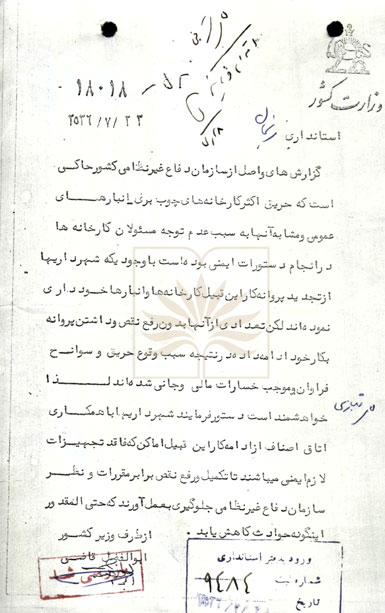 وزارت کشور
۱۸۰۱۸ - ۵۲
۲۵۳۶/۷/۲۳
استانداری زنجان
گزارش های واصل از سازمان دفاع غیرنظامی کشور حاکی
است که حریق اکثر کارخانه های چوب بری انبارهای
عمومی و مشابه آنها به سبب عدم توجه مسئولان کارخانه ها
در انجام دستورات ایمنی بوده است با وجودیکه شهرداریها
از تجدید پروانه کار این قبیل کارخانه ها و انبارها خودداری
نموده اند لکن تعدادی از آنها بدون رفع نقص و داشتن پروانه
بکار خود ادامه داده در نتیجه سبب وقوع حریق و سوانح
فراوان و موجب خسارات مالی و جانی شده اند لذا
خواهشمند است دستور فرمایند شهرداریها با همکاری
اتاق اصناف از ادامه کار این قبیل اماکن که فاقد تجهیزات
لازم ایمنی میباشند تا تکمیل و رفع نقص برابر مقررات و نظر
سازمان دفاع غیرنظامی جلوگیری بعمل آورند که حتی المقدور
اینگونه حوادث کاهش یابد .
از طرف وزیر کشور
ابوالفضل قاضی
ورود به دفتر استانداری
شماره ثبت ۹۴۸۴
تاریخ